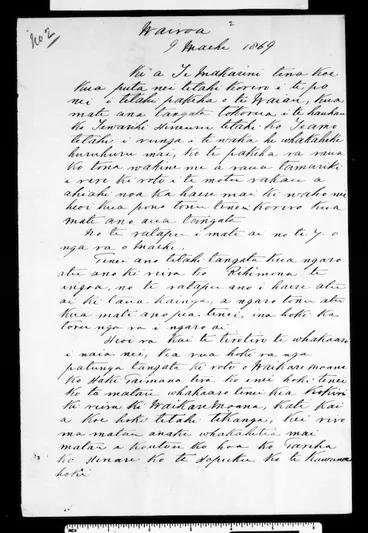 No 2
Wairoa
9 Maehe 1869
Ki a Te Makarini tena koe
Kua puta nei tetahi korero i te po
nei i tetahi pakeha o te Waiau, kua
mate ana tangata tokorua i te hauhau
ko tetahi ko
tetahi i runga i te waka he whakaheke
mai, ko te pakeha ra raua
ko tona wahine me a raua tamariki
i rere ki roto i te motu rakau a
ahiahi noa ka haere mai ki waho nei
heoi kua pono tonu tenei korero kua
mate ano aua tangata
No te ratapu i mate ai no te 7 o
nga ra o Maehe.
Tenei ano tetahi tangata kua ngaro
atu ano ki reira ko Rihimona te
ingoa, no te ratapu ano i haere atu
ai ki tana kainga, a ngaro tonu atu
kua mate ano pea tenei, ina hoki ka
toru nga ra i ngaro ai
Heoi ra kai te tirotiro te whakaaro
i naia nei, ka rua hoki ra nga
patunga tangata ki roto o Waikaremoana
ko tera ko enei hoki tenei
ko ta matau whakaaro tenei kia
ki reira ki Waikaremoana, kati kai
a koe hoki tetahi tikanga, kei riro
ma matau anake whakahaere mai
matau i koutou ko hoa ko Tareha
ko Henare ko te Hapuku ko te Kawana
hoki